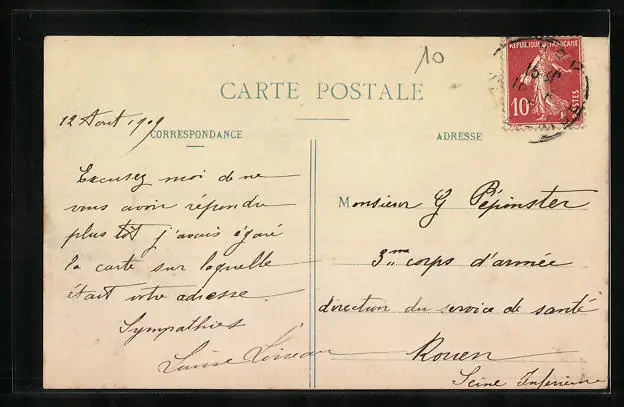 10
RÉPUBLIQUE FRANÇAISE
10c
POSTES
CARTE POSTALE
12 Aout 1909
CORRESPONDANCE
ADRESSE
Excusez moi de ne
vous avoir répondu
plus tôt j'avais égaré
la carte sur laquelle
était votre adresse.
Sympathies
Louise
Monsieur G Pépinster
3me corps d'armée
direction du service de santé
Rouen
Seine Inférieure